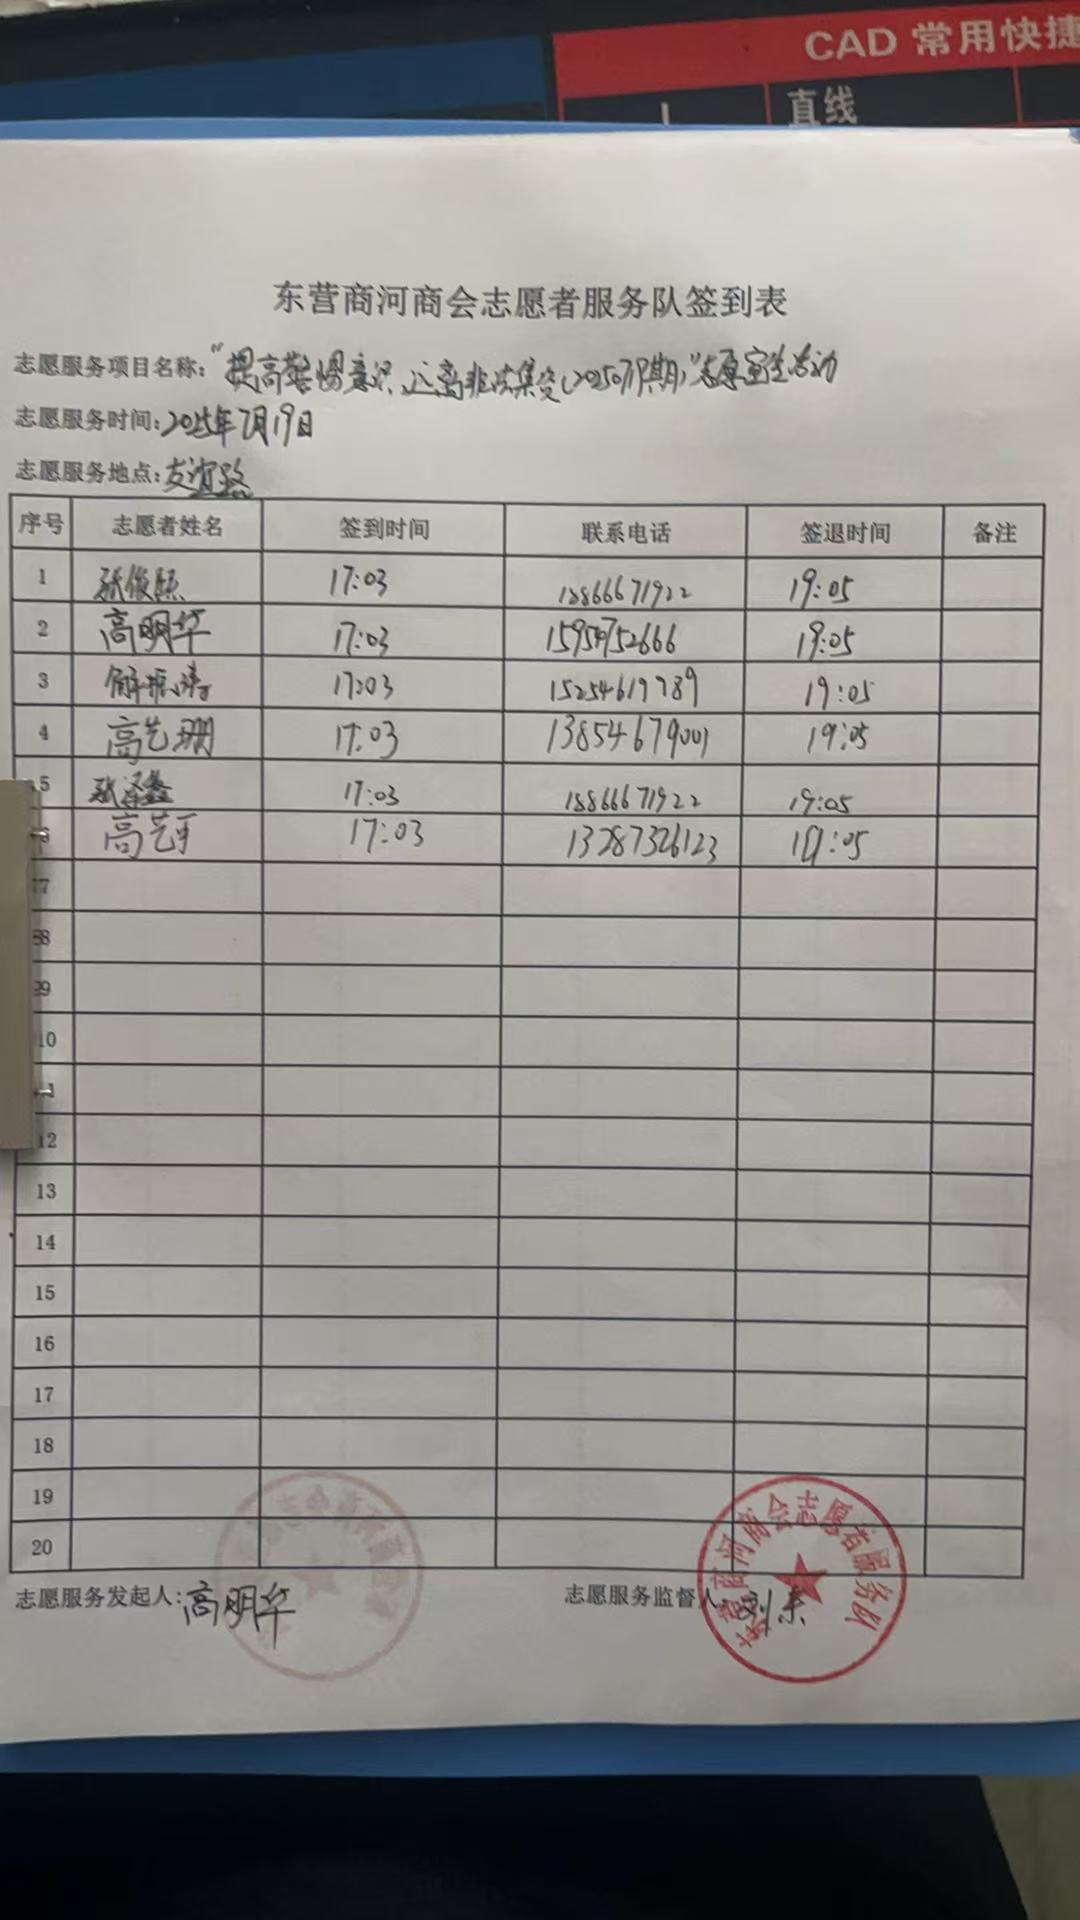 CAD 常用快捷
L 直线
东营商河商会志愿者服务队签到表
志愿服务项目名称："提高警惕意识、远离非法集资(20250719期)"志愿宣传活动
志愿服务时间：2025年7月19日
志愿服务地点：友谊路
序号 志愿者姓名 签到时间 联系电话 签退时间 备注
1 张俊熙 17:03 18866671922 19:05
2 高明华 17:03 15954752666 19:05
3 解振涛 17:03 15254619789 19:05
4 高艺珊 17:03 13854679001 19:05
5 张泽鑫 17:03 18866671922 19:05
6 高艺 17:03 13287326123 19:05
7
8
9
10
11
12
13
14
15
16
17
18
19
20
志愿服务发起人：高明华 志愿服务监督人：刘东
东营商河商会志愿者服务队